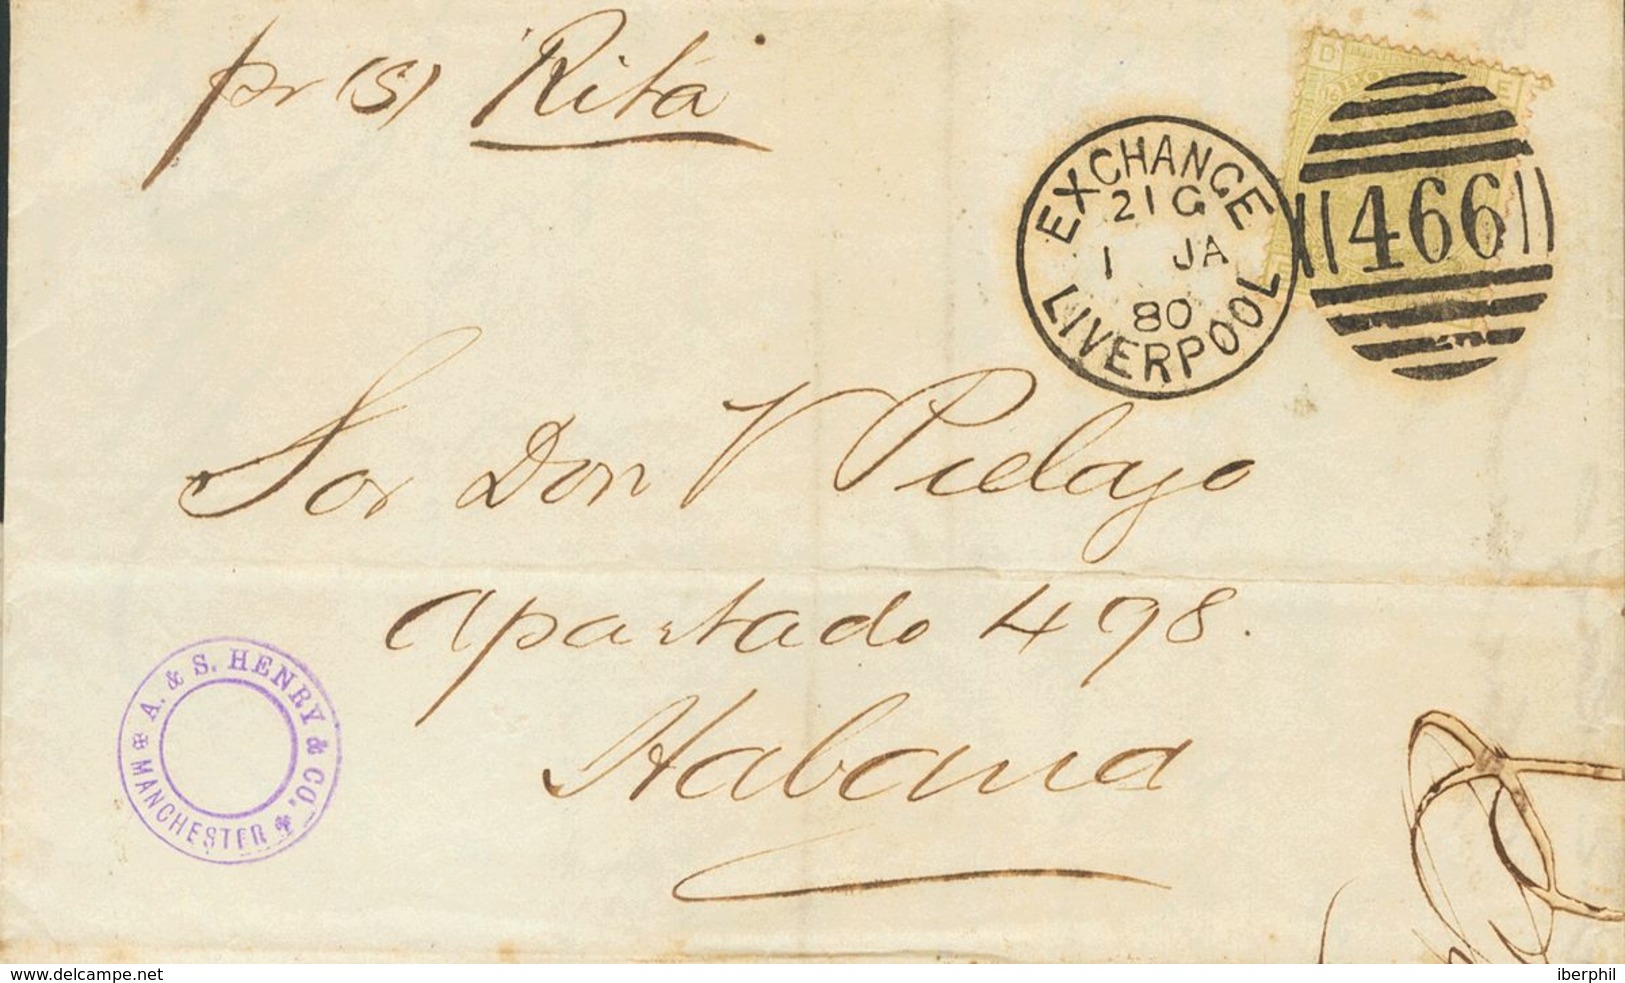 pr (S) Rita
D E
EXCHANGE
21 G
1 JA
80
LIVERPOOL
466
Sor Don V Pielago
Apartado 498.
Habana
A. & S. HENRY & CO.
MANCHESTER
www.delcampe.net
iberphil